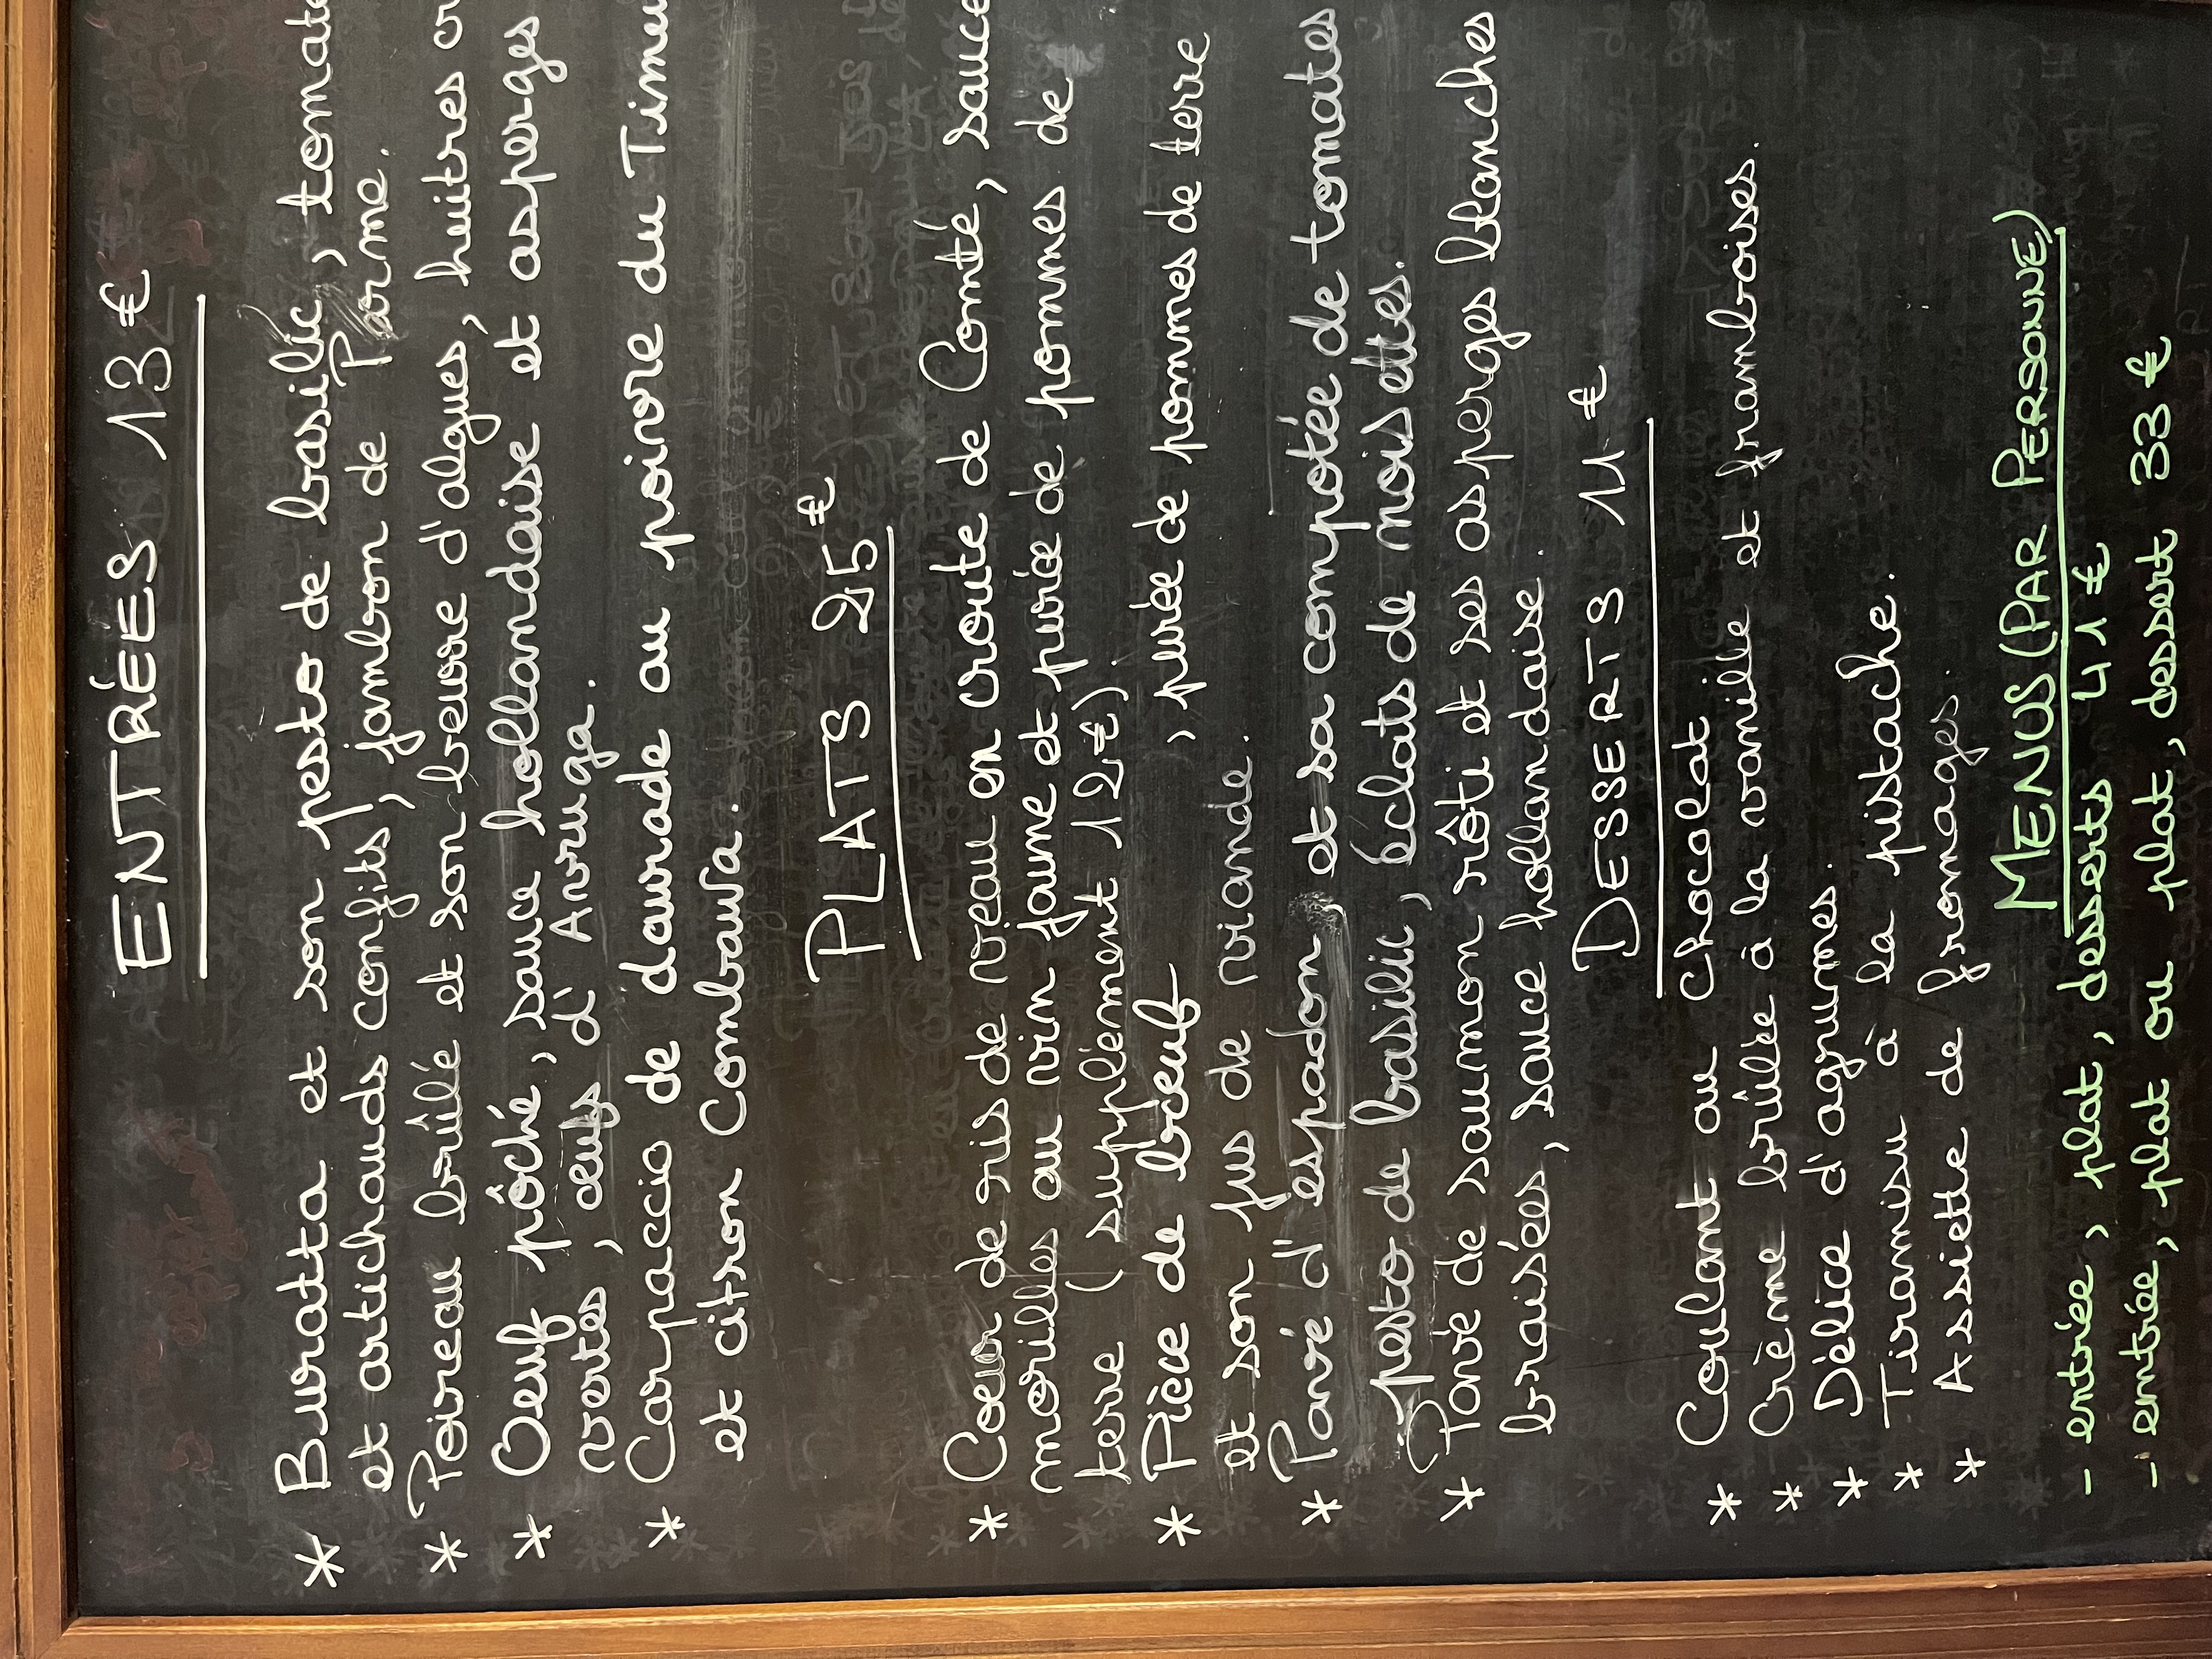 ENTRÉES 13 €
* Buratta et son pesto de basilic, tomate
et artichauds confits, jambon de Parme.
* Poireau brûlé et son beurre d'algues, huitres
* Oeuf pôché, sauce hollandaise et asperges
vertes, œufs d'Avruga.
* Carpaccio de daurade au poivre du Timu
et citron Combawa.
PLATS 25 €
* Coeur de ris de veau en croute de Comté, sauce
morilles au vin jaune et purée de pommes de
terre (supplément 12€).
* Pièce de bœuf , purée de pommes de terre
et son jus de viande.
* Pavé d'espadon et sa compotée de tomates
pesto de basilic, éclats de noisettes.
* Pavé de saumon rôti et ses asperges blanches
braisées, sauce hollandaise.
DESSERTS 11 €
* Coulant au chocolat
* Crème brûlée à la vanille et framboises.
* Délice d'agrumes.
* Tiramisu à la pistache.
* Assiette de fromages.
MENUS (PAR PERSONNE)
- entrée, plat, desserts 41 €
- entrée, plat ou plat, dessert 33 €